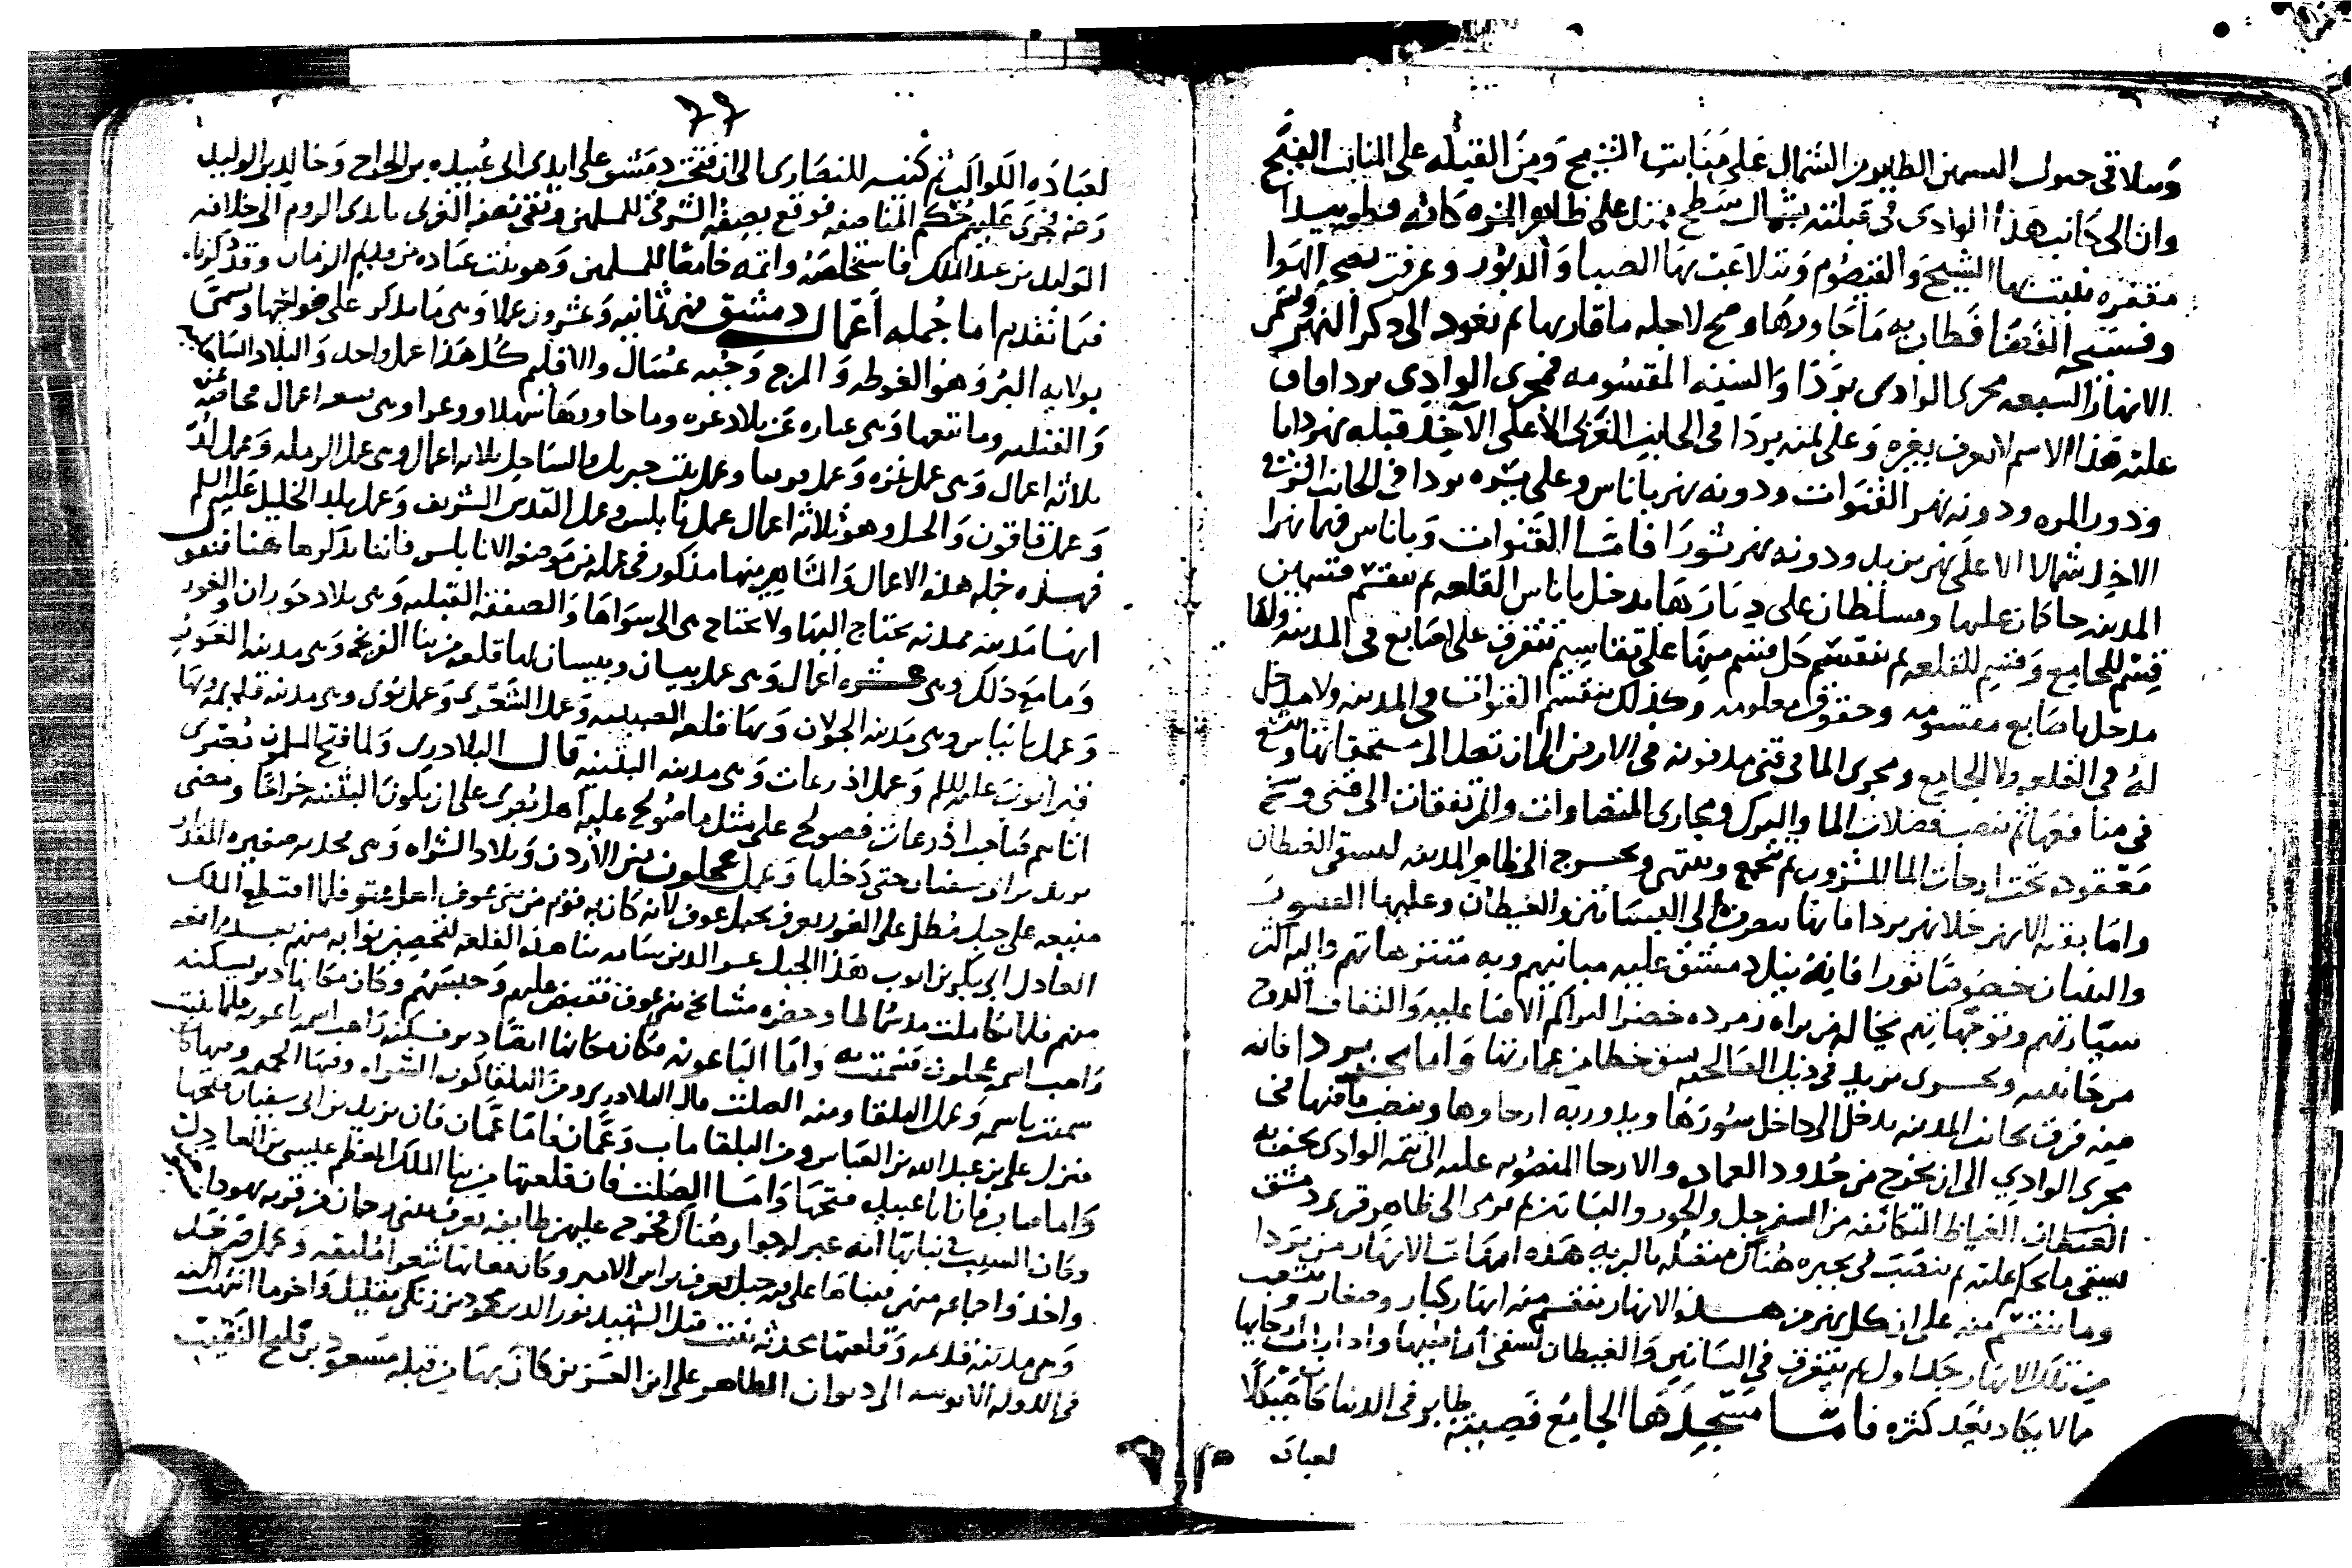 وان الى جانب هذا الوادى فى قبلته بشمال سطح
مقفره ينبت بها الشيح والقيصوم وتتلاعب بها الصبا والدبور وعرفت بصحه الهوا
وفسيح الفضا فطاب به ما جاورها وصح لاجله ماقاربها ثم نعود الى ذكر النهر وتسمى
الانهار السبعه مجرى الوادى بردا والستة المقسومه فمجرى الوادى بردا وما
عليه هذا الاسم لا يعرف بغيره وعلى يمنه بردا فى الجانب الغربى الاعلى الآخذ قبله نهر داريا
ودونه نهر المزه ودونه نهر القنوات ودونه نهر باناس وعلى يسره بردا فى الجانب الشرقى
الاخذ شمالا الاعلى نهر يزيد ودونه نهر ثورا فامّا القنوات وباناس فهما نهرا
المدينه حاكمان عليها ومسلطان على ديارها يدخل باناس القلعه ثم ينقسم قسمين
قسم للجامع وقسم للقلعه ثم ينقسم كل قسم منها على تقاسيم تتفرق على اصابع فى المدينه
مدخل باصابع مقسومه وحقوق معلومه وكذلك ينقسم القنوات فى المدينه ولا مدخل
له فى القلعه ولا الجامع ومجرى الما فى قنى مدفونه فى الارض الى ان تصل الى مستحقاتها
فى منافعها ثم تنصب فضلات الما والبرك ومجارى المتضاوات والمرتفقات الى قنى وسخ
معقوده تحت ارجات الما المشروب ثم تجمع وينتهى ويخرج الى ظاهر المدينه لسقى الغيطان
واما بقيه الانهر خلا نهر بردا فانها تتصرف الى البساتين والغيطان وعليها القصور
والبنيان خصوصًا ثورا فانه نيل دمشق عليه مبانيهم وبه متنزهاتهم واليه اكثر
سيّارتهم وتوجهاتهم يخاله من يراه زمرده خضرا لتراكم الافنا عليه والتفاف الدوح
من جانبيه ويجرى يزيد فى ذيل الصالحيه يشق خطا من عمارتها واما بردا فانه
منه فرق بجانب المدينه يدخل الى داخل سورها ويدور به ارحاوها
مجرى الوادي الى ان يخرج من حدود العماره والارحا المنصوبه عليه الى تتمه الوادى يحف به
الغيطان الغياط المتكاثفه من السفرجل والجور والبساتين ثم يرمى الى ظاهر قرى دمشق
يسقى ما يحكم عليه ثم ينصب فى بحيره هناك متصله بالبريه هذه امهات الانهار من بردا
وما ينقسم منه على ان كل نهر من هذه الانهار ينقسم منه انهار كبار وصغار
من تلك الانهار جداول ثم يتفرق فى البساتين والغيطان لسقى اراضيها وادارات ارحايها
مالا يكاد يعد كثره فامّا مسجدها الجامع فصيته طاير فى الدنيا كان هيكلا
لعباده
٦٦
لعباده الكواكب ثم كنيسه للنصارى الى ان فتحت دمشق على ايدى ابى عبيده بن الجراح وخالد بن الوليد
رضه فجرى عليهم حكم المناصفه فوقع نصفه الشرقى للمسلمين وبقى نصفه الغربى بايدى الروم الى خلافه
الوليد بن عبد الملك فاستخلصه واتمه جامعًا للمسلمين وهو بيت عباده من قديم الزمان وقد ذكرناه
فيما تقدم اما جمله اعمال دمشق فهى ثمانيه وعشرون عملا وهى ما يذكر على ضواحيها وتسمى
بولايه البر وهو الغوطه والمرج وجبه عسال والاقليم كل هذا عمل واحد والبلاد الشاميه
والقبليه وما تبعها وهى عباره عن بلاد غزه وما جاورها سهلا ووعرا وهى تسعه اعمال
ثلاثه اعمال وهى عمل غزه وعمل وعمل بيت جبريل والساحل ثلاثه اعمال وهى عمل الرمله وعمل لد
وعمل قاقون والجبل وهو ثلاثه اعمال عمل نابلس وعمل القدس الشريف وعمل بلد الخليل عليه السلم
فهذه جمله هذه الاعمال والمشاهير منها مذكور فى عمله من موضعه الا نابلس فاننا نذكرها هنا فنقول
انها مدينه يحتاج اليها ولا تحتاج هى الى سواها والصفقه القبليه وهى بلاد حوران والغور
وما مع ذلك وهى عشره اعمال وهى عمل بيسان وبيسان لها قلعه من بنا الفرنج وهى مدينه الغور
وعمل بانياس وهى مدينه الجولان وبها قلعه الصبيبه وعمل الشعرى وعمل نوى وهى مدينه قديمه وبها
قبر ايوب عليه السلم وعمل اذرعات وهى مدينه البثنيه قال البلاذرى ولما فتح المسلمون بُصرى
اتاهم صاحب اذرعات فصولح على مثل ما صولح عليه اهل بصرى على ان يكون البثنيه خراجًا ومضى
يزيد بن ابى سفيان حتى دخلها وعمل عجلون بين الاردن وبلاد الشراه وهى محدثه صغيره المقدار
منيعه على جبل مُطل على الغور يعرف بجبل عوف لانه كان به قوم من بنى عوف اهل عتو فلما اقتطع الملك
العادل ابى بكر بن ايوب هذا الجبل عز الدين سامه بنا هذه القلعه لتحصين نوابه منهم
منهم فلما تكاملت مد سماطا وحضره مشايخ بنى عوف فقبض عليهم وحبسهم وكان مكانها دير يسكنه
راهب اسمه عجلون فسميت به واما الباعونه فكان مكانها ايضا دير يسكنه راهب اسمه باعونه فلما بنيت
سميت باسمه وعمل البلقا ومنه الصلت قال البلاذرى ومن البلقا كور الشراه وفيها الحميمه وبها كان
منزل على بن عبد الله بن العباس ومن البلقا ماب وعمّان فامّا عمّان فان يزيد بن ابى سفيان فتحها
واما ماب فان ابا عبيده فتحها وامّا الصلت فان قلعتها من بنا الملك المعظم عيسى بن العادل
وكان السبب فى بنائها انه عبر له جوار هناك فخرج عليهن طايفه تعرف ببنى رحمان من قريه يهودا
واخذوا جماعه منهن فبناها على جبل يعرف براس الامير وكان مكانها شعرا وعمل صرخد
وهى مدينه قديمه وقلعتها محدثه بنيت قبل الشهيد نور الدين محمود بن زنكى بقليل واخر ما انتهت اليه
فى الدوله الايوبيه الى ديوان الظاهر على ابن العزيز من كان بها من قبله مسعود بن